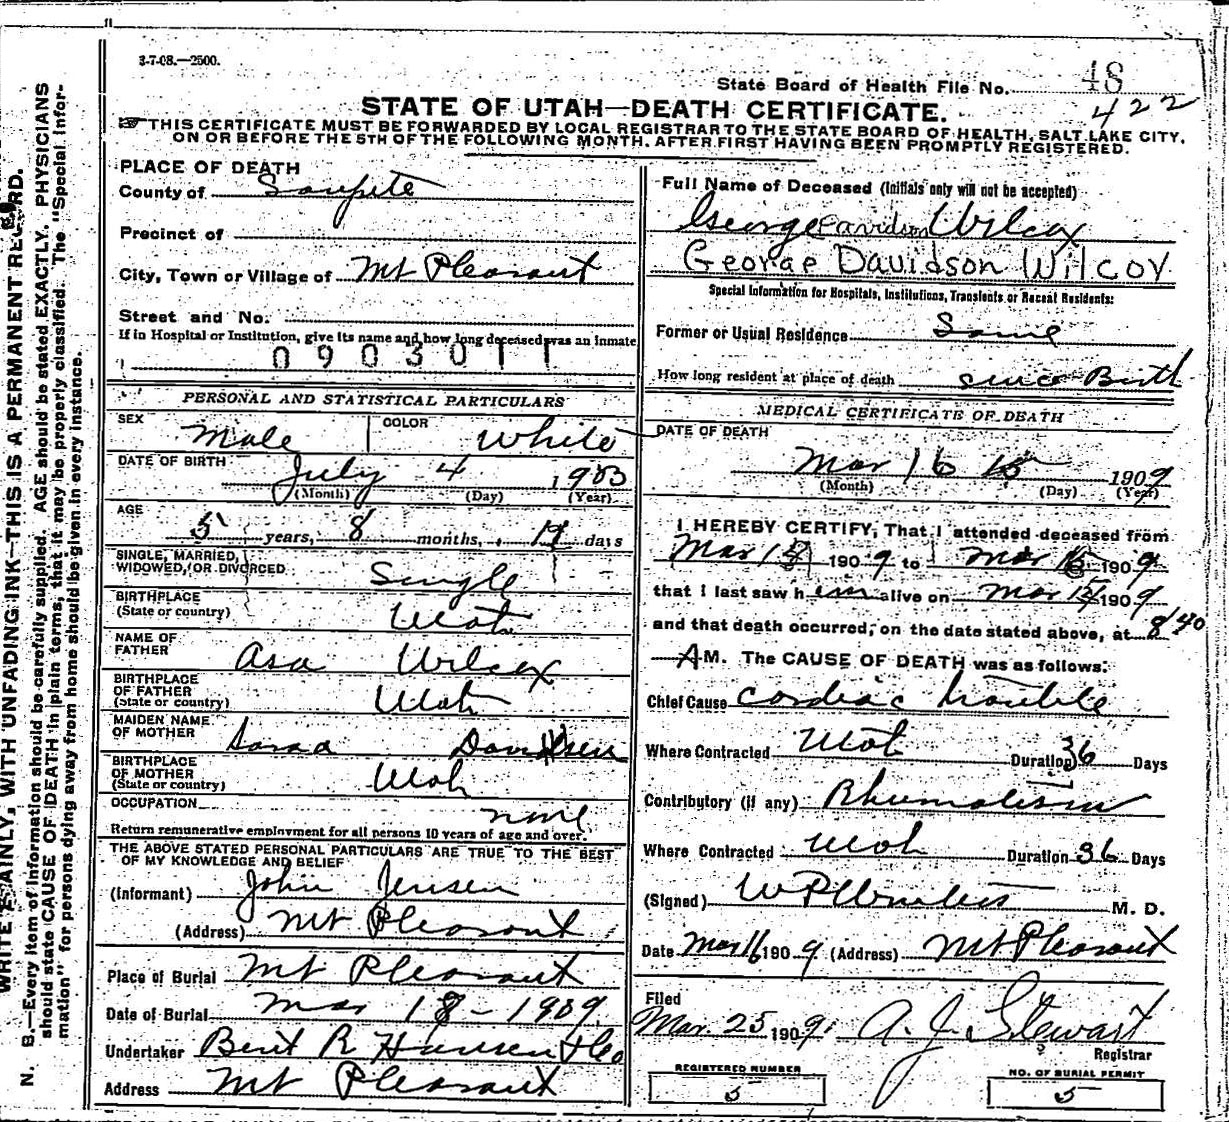 3-7-08.—2500.
State Board of Health File No. 48
422
STATE OF UTAH—DEATH CERTIFICATE.
THIS CERTIFICATE MUST BE FORWARDED BY LOCAL REGISTRAR TO THE STATE BOARD OF HEALTH, SALT LAKE CITY,
ON OR BEFORE THE 5TH OF THE FOLLOWING MONTH, AFTER FIRST HAVING BEEN PROMPTLY REGISTERED.
PLACE OF DEATH
County of Sanpete
Precinct of
City, Town or Village of Mt Pleasant
Street and No.
If in Hospital or Institution, give its name and how long deceased was an inmate
0903011
PERSONAL AND STATISTICAL PARTICULARS
SEX Male COLOR White
DATE OF BIRTH July 4 1903
(Month) (Day) (Year)
AGE
5 years, 8 months, days
SINGLE, MARRIED,
WIDOWED, OR DIVORCED Single
BIRTHPLACE
(State or country) Utah
NAME OF
FATHER Asa Wilcox
BIRTHPLACE
OF FATHER
(State or country) Utah
MAIDEN NAME
OF MOTHER Sara
BIRTHPLACE
OF MOTHER
(State or country) Utah
OCCUPATION none
Return remunerative employment for all persons 10 years of age and over.
THE ABOVE STATED PERSONAL PARTICULARS ARE TRUE TO THE BEST
OF MY KNOWLEDGE AND BELIEF
(Informant) John Jensen
(Address) Mt Pleasant
Place of Burial Mt Pleasant
Date of Burial Mar 18 - 1909
Undertaker Bent R Hansen & Co
Address Mt Pleasant
Full Name of Deceased (Initials only will not be accepted)
George Davidson Wilcox
George Davidson Wilcox
Special Information for Hospitals, Institutions, Transients or Recent Residents:
Former or Usual Residence Same
How long resident at place of death since Birth
MEDICAL CERTIFICATE OF DEATH
DATE OF DEATH
Mar 16 15 1909
(Month) (Day) (Year)
I HEREBY CERTIFY, That I attended deceased from
Mar 1909 to Mar 1909
that I last saw him alive on Mar 15 1909
and that death occurred, on the date stated above, at 8 40
A M. The CAUSE OF DEATH was as follows:
Chief Cause Cardiac trouble
Where Contracted Utah Duration 36 Days
Contributory (if any) Rhumatism
Where Contracted Utah Duration 36 Days
(Signed) M. D.
Date Mar 16 1909 (Address) Mt Pleasant
Filed
Mar. 25 1909. A. J. Stewart
Registrar
REGISTERED NUMBER
5
NO. OF BURIAL PERMIT
5
N. B.—Every item of information should be carefully supplied. AGE should be stated EXACTLY. PHYSICIANS
should state CAUSE OF DEATH in plain terms, that it may be properly classified. The "Special Infor-
mation" for persons dying away from home should be given in every instance.
WRITE PLAINLY, WITH UNFADING INK—THIS IS A PERMANENT RECORD.